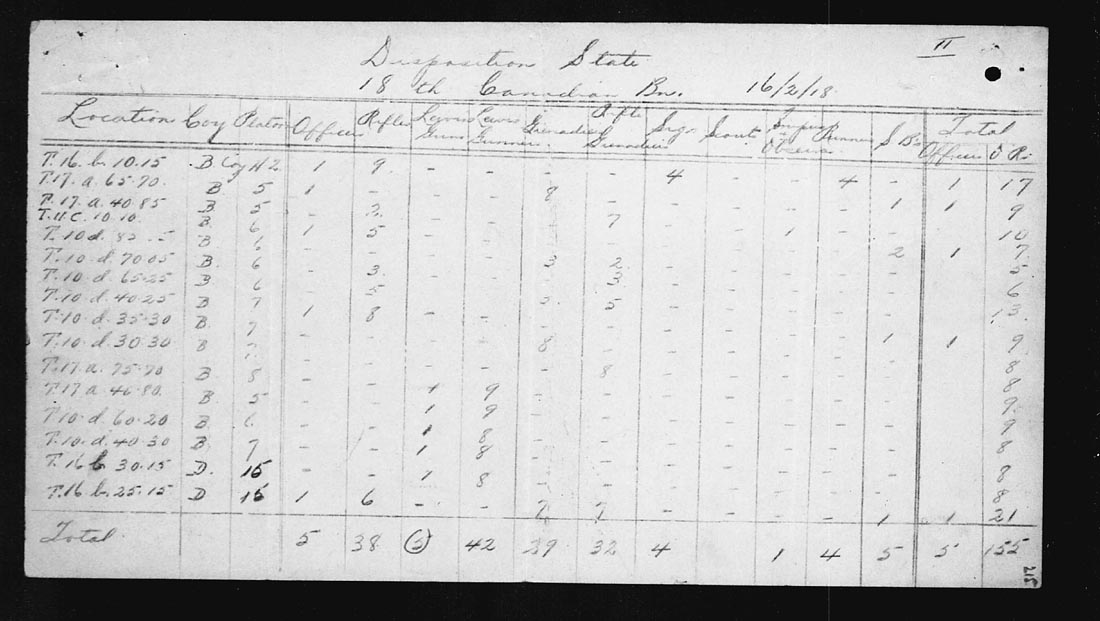 II
Disposition State
18th Canadian Bn. 16/2/18
Location Coy Platoon Officers Rifles Lewis Guns Lewis Gunners Grenadiers Rifle Grenadiers Sigs Scouts Observers Runners S Bs Total Officers O R.
T.16.b.10.15 B Coy H2 1 9 - - - - 4 - - 4 - 1 17
T.17.a.65.70. B 5 1 - - - 8 - - - - - 1 1 9
T.17.a.40.85 B 5 - 3 - - - 7 - - - - - 10
T.11.C.10.10. B. 6 1 5 - - - - - - 1 - 2 1 7
T.10.d.82 B 6 - - - - 3 2 - - - - - 5
T.10.d.70.05 B. 6 - 3 - - - 3 - - - - - 6
T.10.d.65.25 B 6 - 5 - - 5 - - - - - 13
T.10.d.40.25 B 7 1 8 - - - - - - - - 1 1 9
T.10.d.35.30 B. 7 - - - - 8 - - - - - - 8
T.10.d.30.30 B - - - - - 8 - - - - - 8
T.17.a.75.70 B 8 - - 1 9 - - - - - - - 9
T.17.a.46.80. B 5 - - 1 9 - - - - - - - 9
T.10.d.60.20 B. 6 - - 1 8 - - - - - - - 8
T.10.d.40.30 B. 7 - - 1 8 - - - - - - - 8
T.16.b.30.15 D. 15 - - 1 8 - - - - - - - 8
T.16.b.25.15 D 15 1 6 - - 7 7 - - - - 1 1 21
Total 5 38 5 42 39 32 4 1 4 5 5 155
317